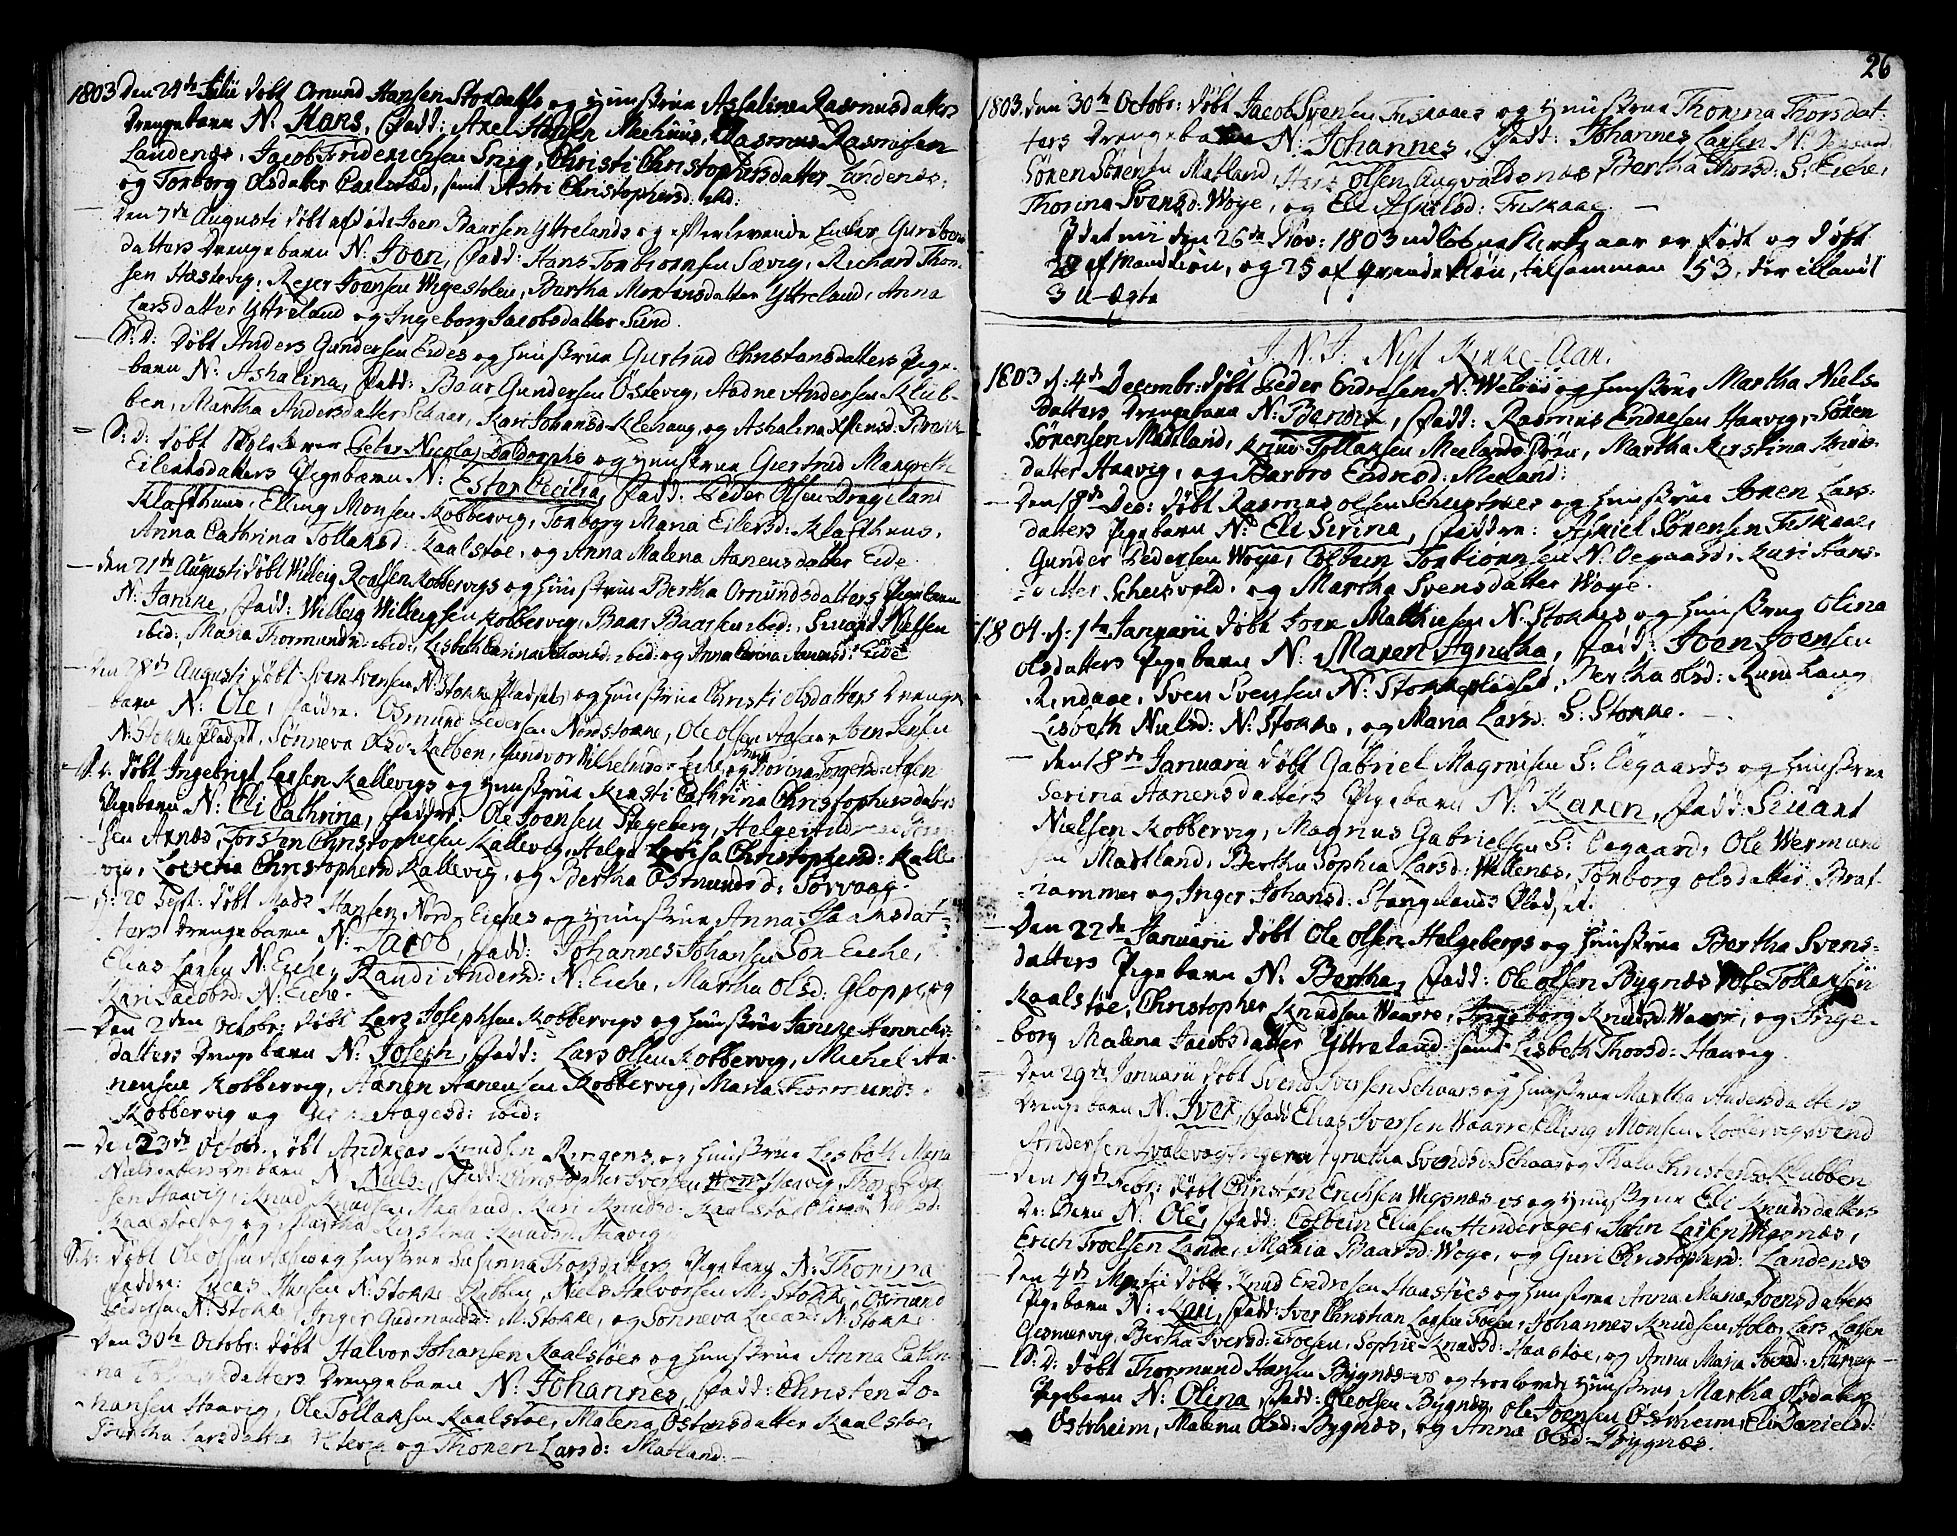 1803 Den 24de Julii døbt Omund Hansen Stokdals og Hustrue Ashalina Rasmusdatters
Drengebarn N: Hans, Fadd: Axel Hansen Meehuus, Rasmus Rasmusen
Landenæs, Jacob Friderichsen Snig, Christi Christophersdatter Landenæs,
og Torborg Olsdatter Carlstæd, samt Astri Christophersd: ibd:
Den 7de Augusti døbt afdøde Joen Baarsen Yttrelands og efterlevende Enke Guri Joens
datters Drengebarn N: Joen, Fadd: Hans Torbiornsen Sævig, Richard Thor
sen Hæstevig, Rejer Joensen Wigestolen, Bertha Mortensdatter Yttreland, Anna
Larsdatter Yttreland og Ingeborg Jacobsdatter Sund.
S: D: døbt Anders Gundersen Eides og Hustrue Giertrud Christansdatters Pige-
barn N: Ashalina, Fadd: Baar Gundersen Østevig, Aadne Andersen Klub-
ben, Martha Andersdatter Schaar, Kari Johansd: Klehaug, og Ashalina
S: D: døbt Peter Nicolaj Valdorphs og Hustrue Giertrud Margrethe
Eilertsdatters Pigebarn N: Ester Cecilia, Fadd: Peder Olsen Drageland
Klafthuus, Elling Monsen Kobbervig, Torborg Maria Eilersd: Klafthuus,
Anna Cathrina Tollaksd: Kaalstøe, og Anna Malena Aanensdatter Eide
— Den 21de Augusti døbt Willeig Roalsen Kobbervigs og Hustrue Bertha Omundsdatters Pigebarn
N: Janike, Fadd: Willeig Willeigsen Kobbervig, Baar Baarsen ibid:, Siuard Nielsen
ibid:, Maria Thormundsd: ibid:, Lisbeth Carina ibid: og Anna Carina Eide
Den 28de Augusti døbt Sven Svensen N: Stokke Pladsets og Hustrue Christi Olsdatters Drenge
barn N: Ole, Faddre: Osmund Pedersen Nordstokke, Ole Olsen Joen Jensen
N: Stokke Pladset, Sønneva Olsd: Kalben, Gundvor Wilhelmsd: Eide, og Torina Torgersd:
S: D: døbt Ingebrigt Larsen Kallevigs og Hustrue Kirsti Cathrina Christophersdatters
Pigebarn N: Eli Cathrina, Faddre: Ole Joensen Stegeberg, Helge
sen Arnæs, Torsten Christophersen Kallevig, Helga Lovisa Christophersd: Kalle
vig, Lovena Christophersd: Kallevig, og Bertha Osmundsd: Sørvaag.
— d: 20 Sept: døbt Mads Hansen Nord-Eiches og Hustrue Anna Isaaksdat-
ters Drengebarn N: Jacob, Fadd: Johannes Johansen Sør-Eiche,
Elias Larsen N: Eiche, Randi Andersd: N: Eiche, Martha Olsd: Gloppe, og
Kari Jacobsd: N: Eiche.
— Den 2den Octobr: døbt Lars Josephsen Kobbervigs og Hustrue Janike Henrichs-
datters Drengebarn N: Joseph, Fadd: Lars Olsen Kobbervig, Michel Aa-
nensen Kobbervig, Aanen Aanensen Kobbervig, Maria Tormunds:
Kobbervig og Aagesd: ibid:
— Den 23de Octobr: døbt Andreas Knudsen Ringens og Hustrue Lisbeth Maria
Nielsdatters Drengebarn N: Niels, Fadd: Christopher Iversen Haavig,
sen Haavig, Knud Knudsen Kari Knudsd: Kaalstøe
Kaalstøe og Martha Kirstina Knudsd: Haavig
S: D: døbt Ole Olsen og Hustrue Susanna Thorsdatters Pigebarn N: Thorina
Faddre: Lucas Hansen N: Stokke Niels Halvorsen M: Stokke, Osmund
Pedersen N: Stokke, Inger Gudmunds: M: Stokke, og Sonneva N: Stokke.
— Den 30te Octobr: døbt Halvor Johansen Kaalstøes og Hustrue Anna Cathri-
na datters Drengebarn N: Johannes, Fadd: Christen Jo-
hansen Haavig, Ole Tollaksen Kaalstøe, Malena Østensdatter Kaalstøe,
Bertha Larsdatter og Thoren Larsd: Matland.
26
1803. Den 30te Octobr: døbt Jacob Svensen Fiskaaes og Hustrue Thorina Thorsdat-
ters Drengebarn N: Johannes, Fadd: Johannes Larsen N: Oegaard
Søren Sørensen Matland, Olsen Augvaldsnæs, Bertha Thorsd: S: Eiche,
Thorina Svensd: Woge, og Eli Aslielsd: Fiskaae. —
I det nu den 26de Nov: 1803 udløbne Kirke aar er født og døbt
28 af Mandkiøn, og 25 af Qvindekiøn, tilsammen 53, der iblandt
3 U-Ægte
I. N. J: Nyt Kirke-Aar.
1803 d: 4de Decembr: døbt Peder Endresen N: og Hustrue Martha Niels-
datters Drengebarn N: Berdix, Fadd: Rasmus Endresen Haavig, Søren
Sørensen Matland, Knud Tollaksen Meeland, Martha Kirstina Knuds-
datter Haavig, og Barbro Endresd: Meeland:
— Den 18de Dec: døbt Rasmus Olsen og Hustrue Joren Lars-
datters Pigebarn N: Eli Sirina, Faddre: Asniel Sørensen Fiskaae,
Gunder Pedersen Woge, Colbein Torbiornsen N: Oegaard, Kari Hans-
datter og Martha Svensdatter Woge.
1804. d: 1te Januarii døbt Joen Mathiesen N: Stokkes og Hustrue Olina
Olsdatters Pigebarn N: Maren Agnetha, Fadd: Joen Joensen
Rindaae, Sven Svensen N: Stokkepladset, Bertha Olsd: Rundhaug
Lisbeth Nielsd: N: Stokke, og Maria Larsd: S: Stokke.
— Den 18de Januarii døbt Gabriel Magnusen S: Oegaards og Hustrue
Serina Aanensdatters Pigebarn N: Karen, Fadd: Siuart
Nielsen Kobbervig, Magnus Gabrielsen S: Oegaard, Ole Wermund
sen Matland, Bertha Sophia Larsd: Wellenæs, Torborg Olsdatter Brat-
hammer og Inger Johansd: Stangelands Pladset.
— Den 22de Januarii døbt Ole Olsen Helgebergs og Hustrue Bertha Svens-
datters Pigebarn N: Bertha, Fadd: Ole Olsen Bygnæs, Ole Tollaksen
Kaalstøe, Christopher Knudsen Waare, Ingeborg Knudsd: Waare, og Inge-
borg Malena Jacobsdatter Yttreland samt Lisbeth Thorsd: Haavig.
— Den 29de Januarii døbt Svend Iversen Schaars og Hustrue Martha Andersdatters
Drengebarn N: Iver, Fadd: Elias Iversen Waarre, Elling Monsen Kobbervig, Svend
Andersen Qvalevog, Agnetha Svendsd: Schaar, og Thala Christensd: Klubben
— Den 19de Febr: døbt Christen Erichsen Wigsnæs'es og Hustrue Eli Knudsdatters
Dr: Barn N: Ole, Fadd: Colbein Eliasen Hinderager, John Larsen Wigsnæs,
Erich Troelsen Lande, Maria Baarsd: Woge, og Guri Christophersd: Landenæs
— Den 4de Martii døbt Knud Endresen Haastøes og Hustrue Anna Maria Joensdatters
Pigebarn N: Kari, Fadd: Iver Christian Larsen Foesen, Johannes Knudsen Holo, Lars Larsen
Giesmervig, Bertha Iversd: Foesen, Sophie Knudsd: Haastøe, og Anna Maria Joensd:
— S: D: døbt Thormund Hansen Bygnæs-es og trolovede Hustrue Martha Olsdatters
Pigebarn N: Olina, Fadd: Ole Olsen Bygnæs, Ole Joensen Østrheim, Eli Danielsd:
Østrheim, Malena Olsd: Bygnæs, og Anna
Olsd: Bygnæs.